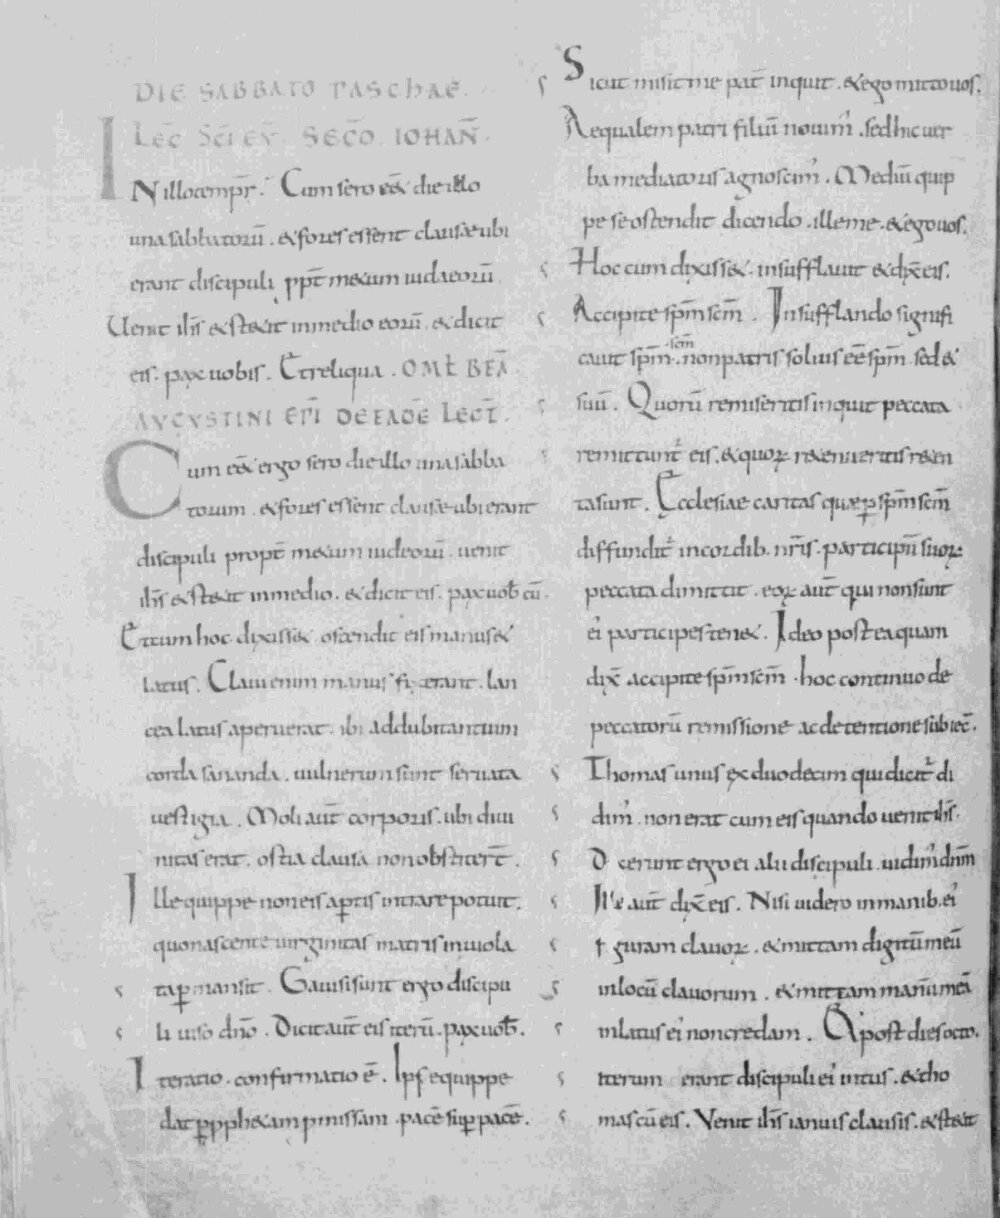 DIE SABBATO PASCHAE.
LEC̄ S̄C̄I EV̄. SEC̄O. IOHAN̄.
IN illo temp̄r. Cum sero eēt die illo
una sabbatorū. & fores essent clausae ubi
erant discipuli ppt̄ metum iudaeorū.
Uenit ih̄s & stetit in medio eorū. & dicit
eis. pax uobis. Et reliqua. OML̄ BEĀ
AUGUSTINI EP̄I DE EADĒ LECT̄.
Cum eēt ergo sero die illo una sabba
torum. & fores essent clausae ubi erant
discipuli propt̄ metum iudeorū. uenit
ih̄s & stetit in medio. & dicit eis. pax uob̄ cū.
Et cum hoc dixiss&. ostendit eis manus &
latus. Claui enim manus fixerant. lan
cea latus aperuerat. ibi ad dubitantium
corda sananda. uulnerum sunt seruata
uestigia. Moli aut̄ corporis. ubi diui
nitas erat. ostia clausa non obstiter̄t.
Ille quippe non eis aptis intrare potuit.
quo nascente uirginitas matris inuiola
ta pmansit. Gauisi sunt ergo discipu
li uiso dn̄o. Dicit aut̄ eis iterū. pax uob̄.
Iteratio. confirmatio ē. Ipse quippe
dat p pph&am pmissam. pacē sup pacē.
Sicut misit me pat̄ inquit. & ego mitto uos.
Aequalem patri filiū nouim'. sed hic uer
ba mediatoris agnoscim'. Mediū quip
pe se ostendit dicendo. ille me. & ego uos.
Hoc cum dixiss&. insufflauit & dix̄ eis.
Accipite sp̄m sc̄m. Insufflando signifi
cauit sp̄m sc̄m. non patris solius eē sp̄m. sed &
suū. Quorū remiseritis inquit peccata
remittunt' eis. & quoꝝ retenueritis reten
ta sunt. Ecclesiae caritas quae p sp̄m sc̄m
diffundit' in cordib. nr̄is. participū suoꝝ
peccata dimittit. eoꝝ aut̄ qui non sunt
ei' participes ten&. Ideo postea quam
dix̄ accipite sp̄m sc̄m. hoc continuo de
peccatorū remissione ac detentione subiec̄.
Thomas unus ex duodecim qui dicit' di
dim'. non erat cum eis quando uenit ih̄s.
Dicerunt ergo ei alii discipuli. uidim' dn̄m
Ille aut̄ dix̄ eis. Nisi uidero in manib. ei'
figuram clauoꝝ. & mittam digitū meū
in locū clauorum. & mittam manū meā
in latus ei' non credam. & post dies octo.
iterum erant discipuli ei' intus. & tho
mas cū eis. Venit ih̄s ianuis clausis. & stetit